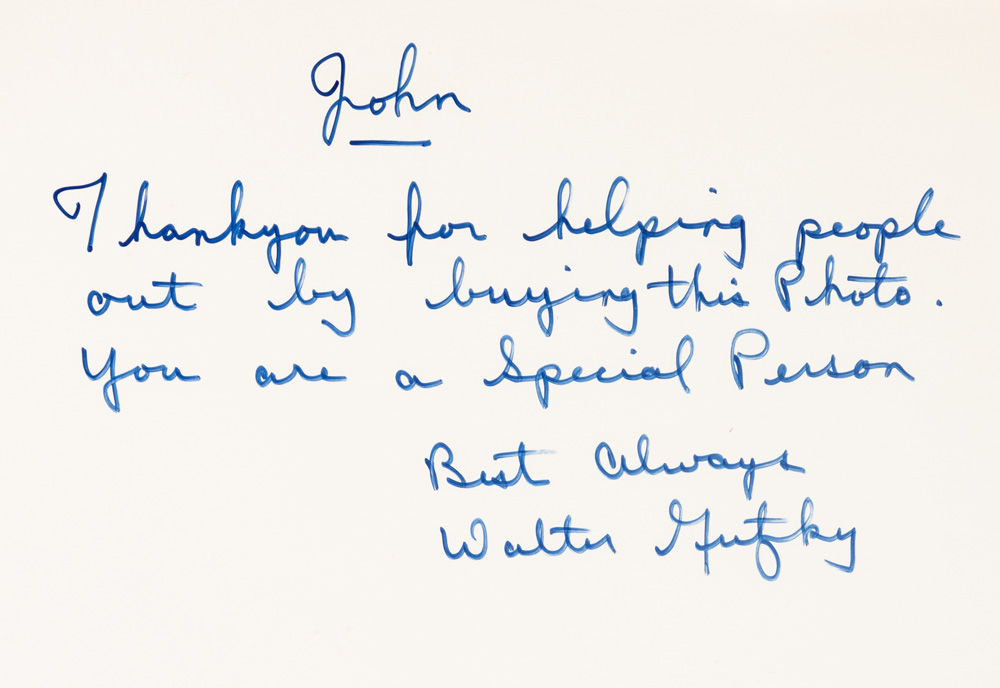 John
Thankyou for helping people
out by buying this Photo.
You are a Special Person
Best Always
Walter